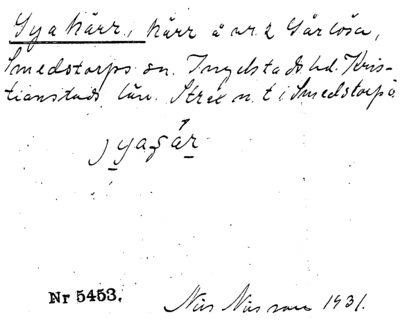 Sya kärr, kärr å nr. 2 Gårlösa,
Smedstorps sn. Ingelstads hd. Kris-
tianstads län. Strax n. t i Smedstorp å
Nr 5453.
Nils Nilsson 1931.